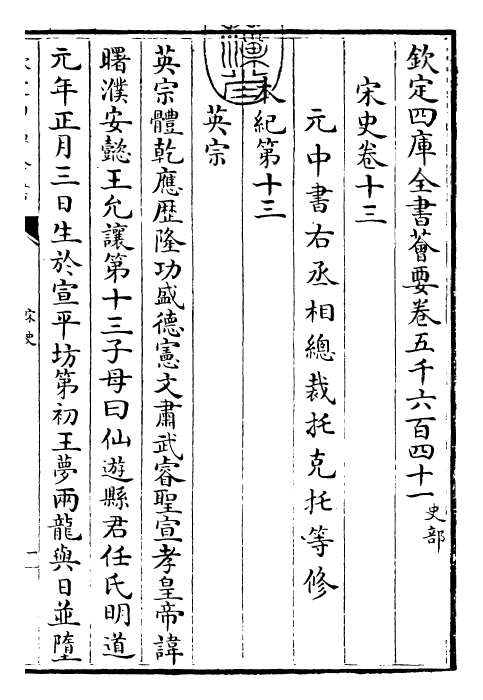 欽定四庫全書薈要卷五千六百四十一 史部
宋史卷十三
元中書右丞相總裁托克托等修
本紀第十三
英宗
英宗體乾應歷隆功盛德憲文肅武睿聖宣孝皇帝諱
曙濮安懿王允讓第十三子母曰仙遊縣君任氏明道
元年正月三日生於宣平坊第初王夢兩龍與日並墮
宋史